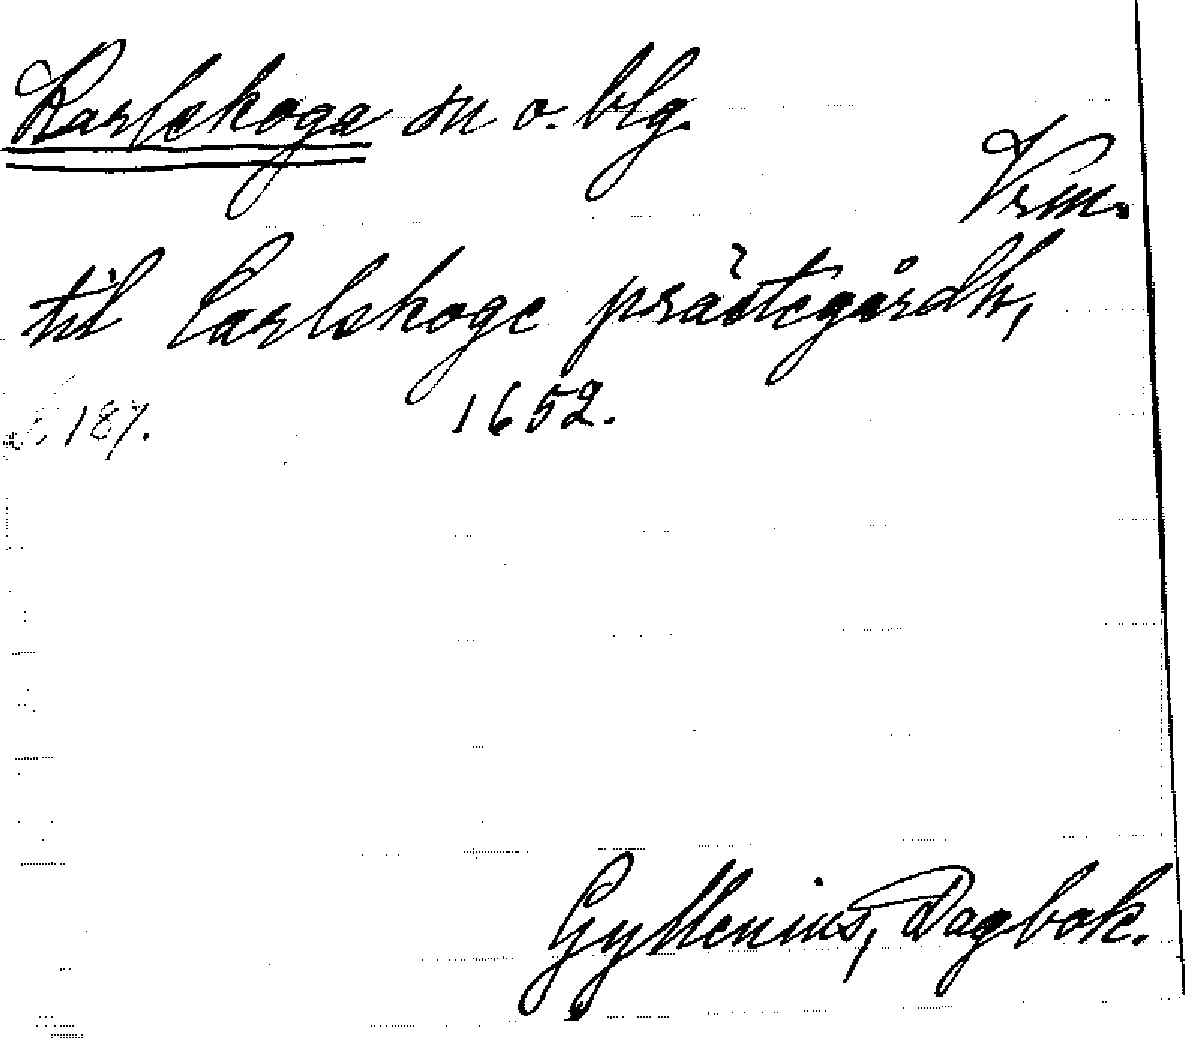 Karlskoga sn o. blg.
Vrm.
til Carlskoge prästegårdh,
s. 187. 1652.
Gyllenius, Dagbok.